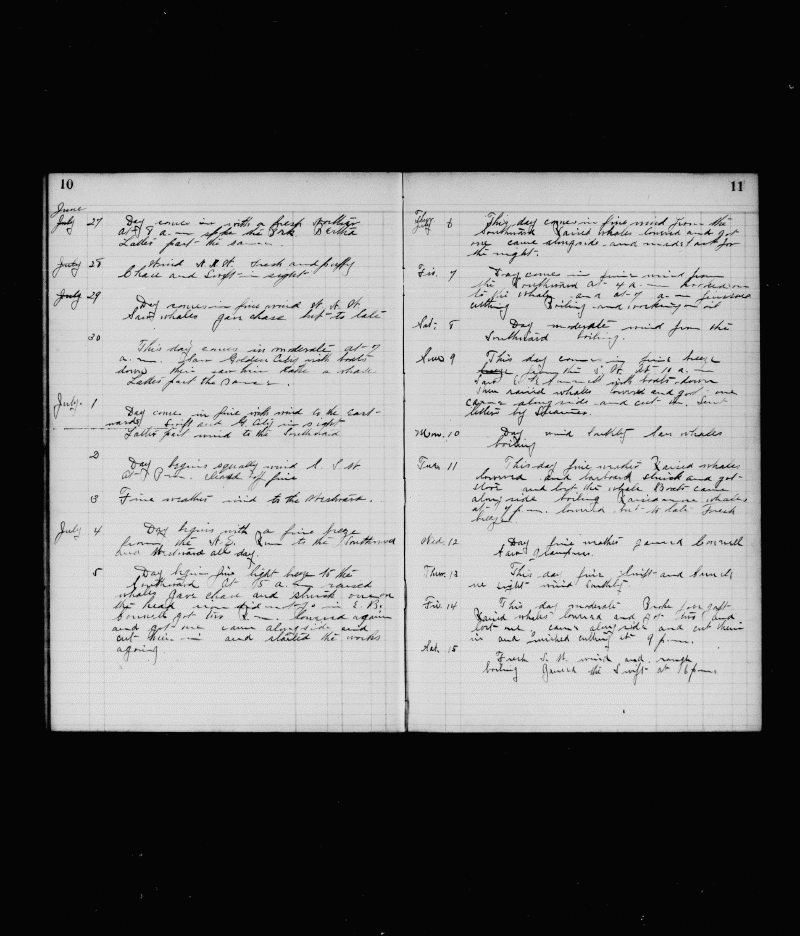 10
June
July 27 Day comes in with a fresh Norther
at 8 a.m. spoke the Bark Bertha
Latter part the same.
July 28 Wind N.N.W. Fresh and puffy
Chace and Swift in sight
July 29
Day comes in fine wind W.N.W.
Saw whales gave chase but to late
30
This day comes in moderate at 7
a.m. saw Golden City with boats
down then saw him take a whale
Latter part the same.
July. 1
Day comes in fine with wind to the East-
ward. Swift and G. City in sight
Latter part wind to the Southward
2
Day begins squally wind S.W
at P.m. cleared off fine
3 Fine weather wind to the Westward.
July 4 Day begins with a fine breeze
from the N.E. Run to the Southward
and Westward all day.
5 Day begins fine light breeze to the
Southward At 5 a.m. raised
whales gave chase and struck one on
the head iron did not go in E. B.
Conwell got two P.m. lowered again
and got one came alongside and
cut him in and started the works
again.
11
Thur.
July 6 This day comes in fine wind from the
Southward Raised whales lowered and got
one came alongside and made fast for
the night.
Fri. 7 Day comes in fine wind from
the Southward at 4 a.m. hooked on
to the whale and at 7 a.m. finished
cutting Boiling and working on oil
Sat. 8 Day moderate wind from the
Southward boiling.
Sun 9 This day comes in fine breeze
from the S. W. At 10 a.m.
Saw with boats down
raised whales lowered and got one
came alongside and cut in. Sent
letters by Steamer.
Mon. 10 Day wind Southly Saw whales
boiling
Tues 11 This day fine weather Raised whales
lowered and larboard struck and got
stove and lost the whale Boats came
along side boiling Raised more whales
at 4 p.m. lowered but to late Fresh
breeze
Wed. 12 Day fine weather gamed Conwell
Saw
Thur. 13 This day fine Swift and
in sight wind Southly
Fri. 14 This day moderate
Raised whales lowered and got two and
lost one came alongside and cut them
in and finished cutting at 9 p.m.
Sat. 15
Fresh S.W. wind and rough
boiling Gamed the Swift at 6 p.m.